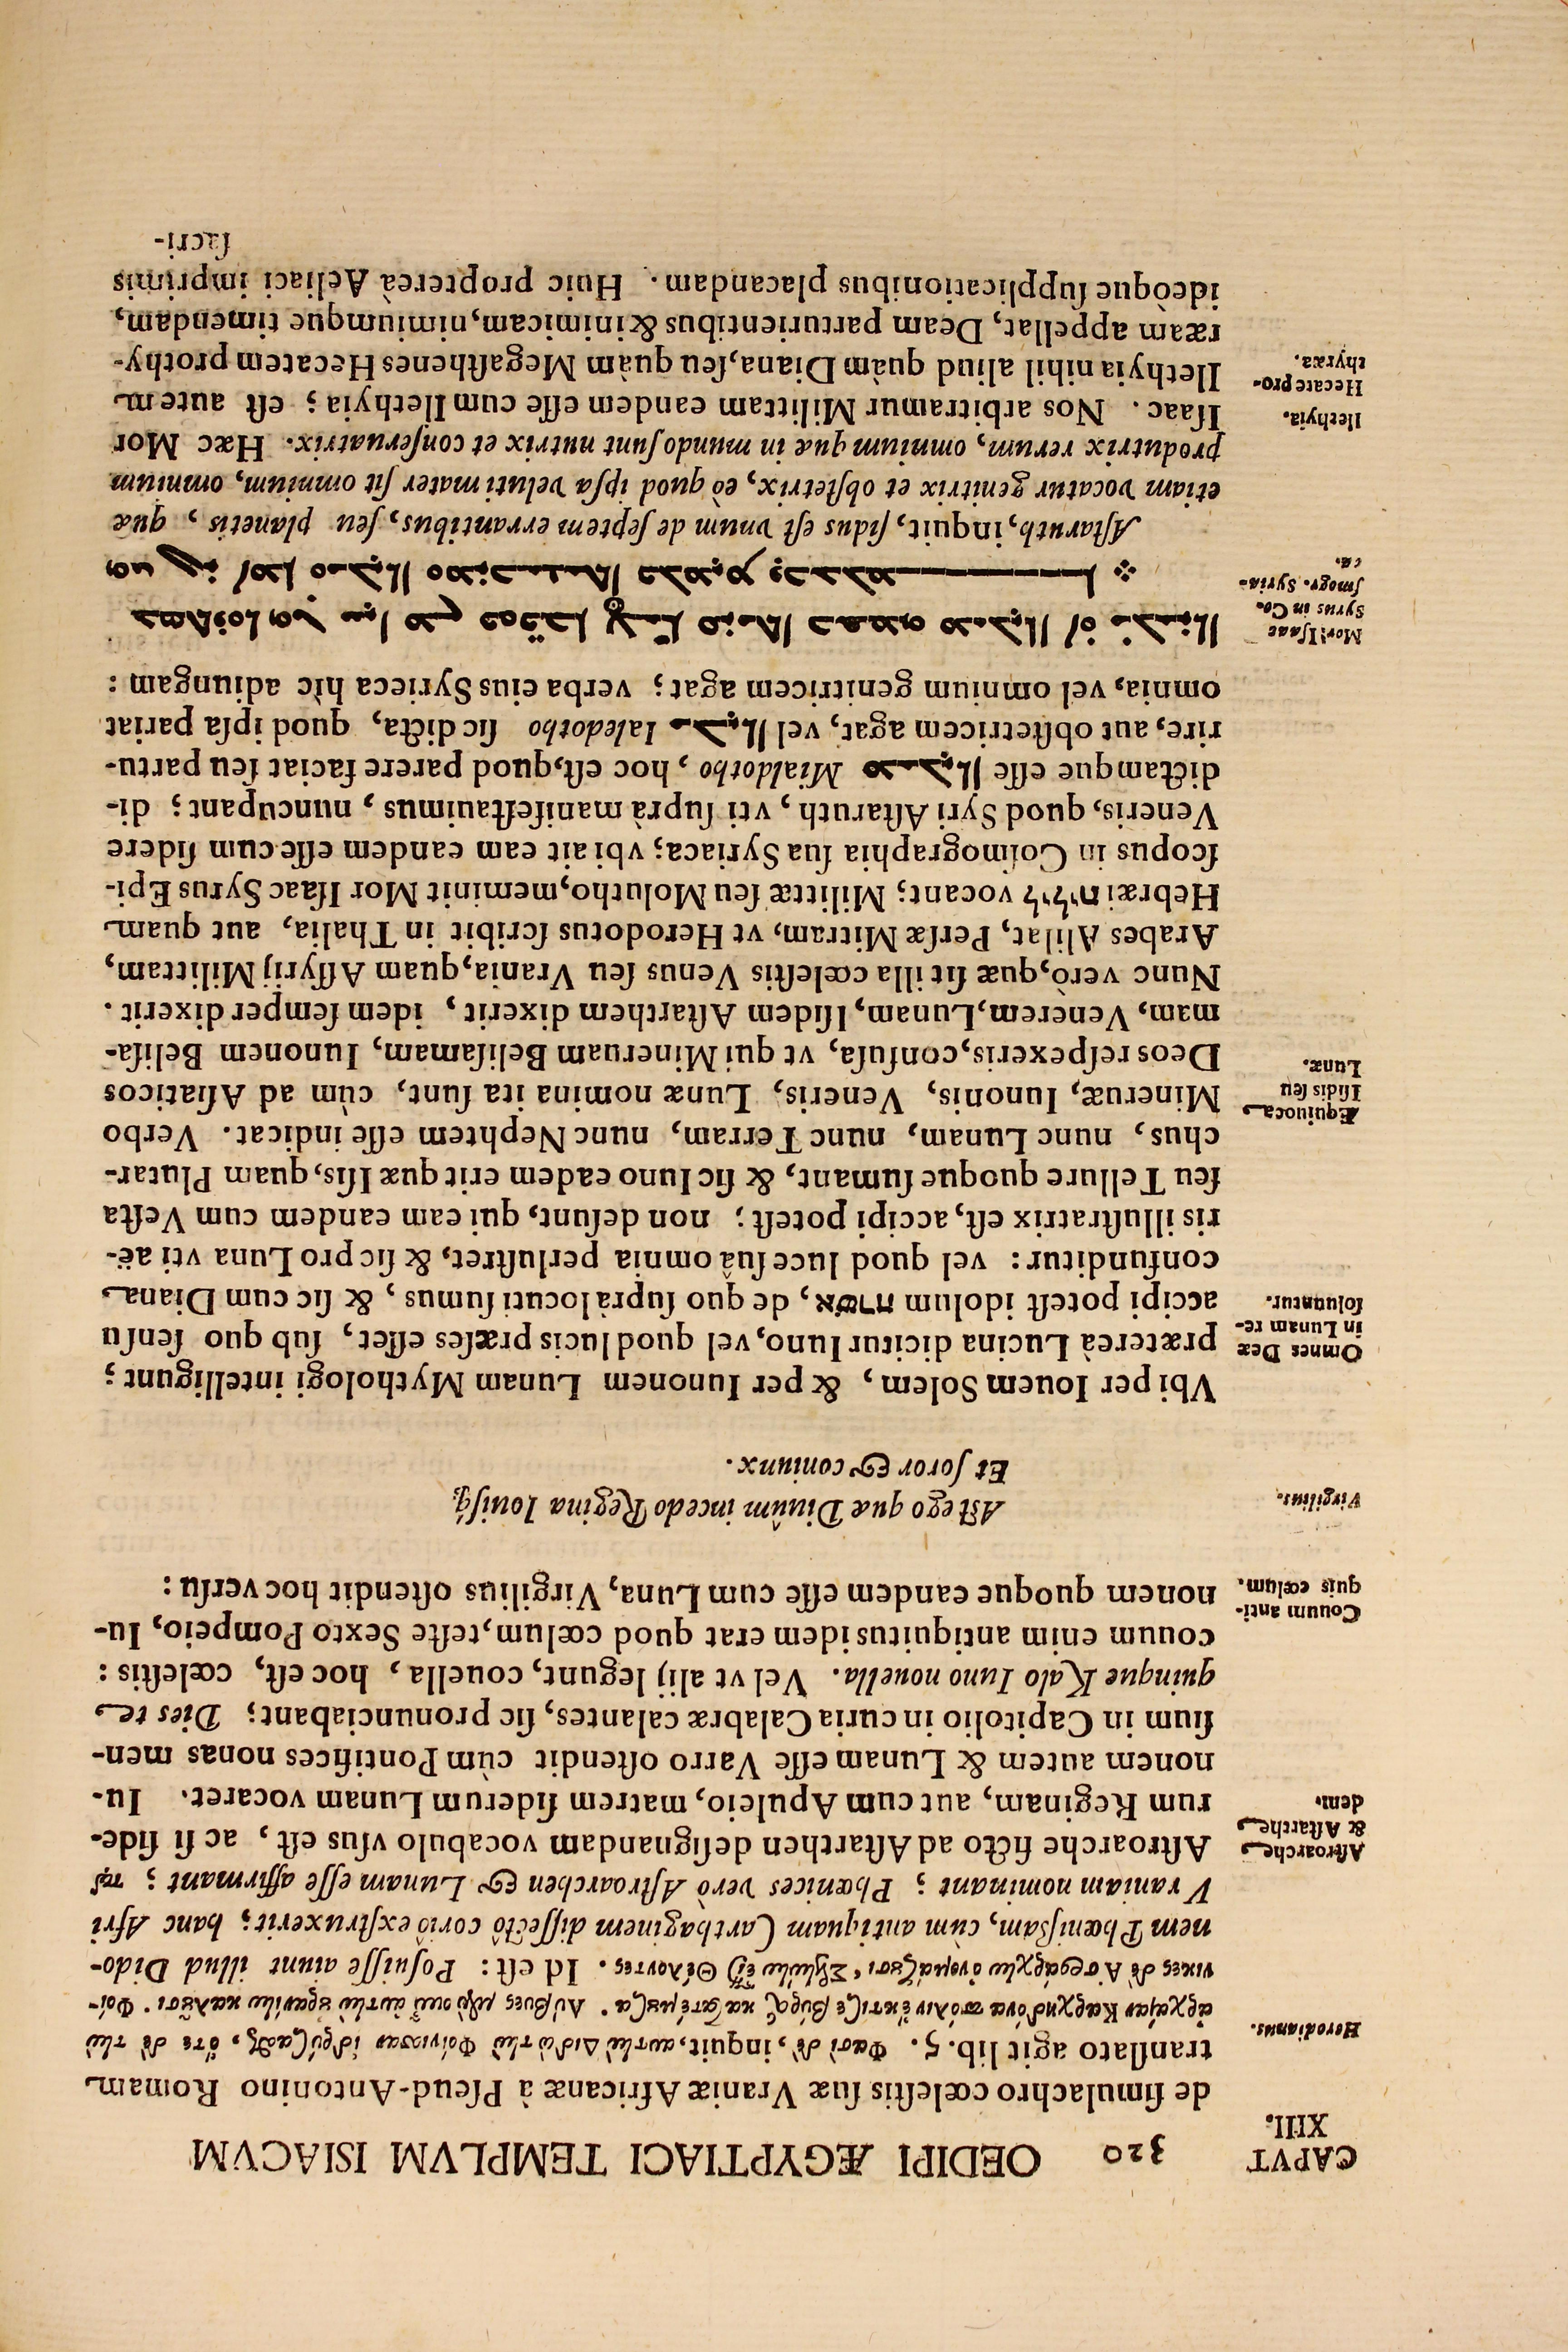 CAPVT
XIII.
320 OEDIPI ÆGYPTIACI TEMPLVM ISIACVM
de ſimulachro cœleſtis ſuæ Vraniæ Africanæ à Pſeud-Antonino Romam
Herodianus.
tranſlato agit lib. 5. Φασὶ δὲ, inquit, αυτlὼ Διδὼ τlὼ Φοίνισσαν ἱδρύσαϑζ, ὅτε δὲ τlὼ
ἀρχαίαν Καρχηδόνα πόλιν ἔκτισε βύρσζ κατατέμȣσα. Λίβυες μὲν οιῶ ἀυτlὼ ȣ̓ρανίlω καλȣ͂σι. Φοί-
νικες δὲ Ἀσροάρχlω ὀνομάζȣσι, Σελlώlω ἐῖ Θέλοντες. Id eſt: Poſuiſſe aiunt illud Dido-
nem Phœniſſam, cùm antiquam Carthaginem diſſectô coriô exſtruxerit; hanc Afri
Vraniam nominant; Phœnices verò Aſtroarchen & Lunam eſſe affirmant;
Aſtroarche
& Aſtarche
dem.
Aſtroarche ficto ad Aſtarthen deſignandam vocabulo vſus eſt, ac ſi ſide-
rum Reginam, aut cum Apuleio, matrem ſiderum Lunam vocaret. Iu-
nonem autem & Lunam eſſe Varro oſtendit cùm Pontifices nonas men-
ſium in Capitolio in curia Calabræ calantes, ſic pronunciabant; Dies te
quinque Kalo Iuno nouella. Vel vt alij legunt, couella, hoc eſt, cœleſtis:
Couum anti-
quis cœlum.
couum enim antiquitus idem erat quod cœlum, teſte Sexto Pompeio, Iu-
nonem quoque eandem eſſe cum Luna, Virgilius oſtendit hoc verſu:
Virgilius.
Aſt ego quæ Diuûm incedo Regina Iouiſq;
Et ſoror & coniunx.
Vbi per Iouem Solem, & per Iunonem Lunam Mythologi intelligunt;
Omnes Deæ
in Lunam re-
ſoluuntur.
prætereà Lucina dicitur Iuno, vel quod lucis præſes eſſet, ſub quo ſenſu
accipi poteſt idolum אשרח, de quo ſuprà locuti ſumus, & ſic cum Diana
confunditur: vel quod luce ſuâ omnia perluſtret, & ſic pro Luna vti aë-
ris illuſtratrix eſt, accipi poteſt; non deſunt, qui eam eandem cum Veſta
ſeu Tellure quoque ſumant, & ſic Iuno eadem erit quæ Iſis, quam Plutar-
chus, nunc Lunam, nunc Terram, nunc Nephtem eſſe indicat. Verbo
Æquiuoca
Iſidis ſeu
Lunæ.
Mineruæ, Iunonis, Veneris, Lunæ nomina ita ſunt, cùm ad Aſiaticos
Deos reſpexeris, confuſa, vt qui Mineruam Beliſamam, Iunonem Beliſa-
mam, Venerem, Lunam, Iſidem Aſtarthem dixerit, idem ſemper dixerit.
Nunc verò, quæ ſit illa cœleſtis Venus ſeu Vrania, quam Aſſyrij Milittam,
Arabes Alilat, Perſæ Mitram, vt Herodotus ſcribit in Thalia, aut quam
Hebræi לילית vocant; Milittæ ſeu Molutho, meminit Mor Iſaac Syrus Epi-
ſcopus in Coſmographia ſua Syriaca; vbi ait eam eandem eſſe cum ſidere
Veneris, quod Syri Aſtaruth, vti ſuprà manifeſtauimus, nuncupant; di-
ctamque eſſe Mialdotho, hoc eſt, quod parere faciat ſeu partu-
rire, aut obſtetricem agat, vel Ialedotho ſic dicta, quòd ipſa pariat
omnia, vel omnium genitricem agat; verba eius Syrieca hîc adiungam:
Mor Iſaac
Syrus in Co-
ſmogr. Syria-
ca.
Aſtaruth, inquit, ſidus eſt vnum de ſeptem errantibus, ſeu planetis, quæ
etiam vocatur genitrix et obſtetrix, eò quod ipſa veluti mater ſit omnium, omnium
produtrix rerum, omnium quæ in mundo ſunt nutrix et conſeruatrix. Hæc Mor
Ilethyia.
Iſaac. Nos arbitramur Milittam eandem eſſe cum Ilethyia; eſt autem
Hecate pro-
thyræa.
Ilethyia nihil aliud quàm Diana, ſeu quàm Megaſthenes Hecatem prothy-
ræam appellat, Deam parturientibus & inimicam, nimiumque timendam,
ideòque ſupplicationibus placandam. Huic propterea Aeliaci imprimis
ſacri-